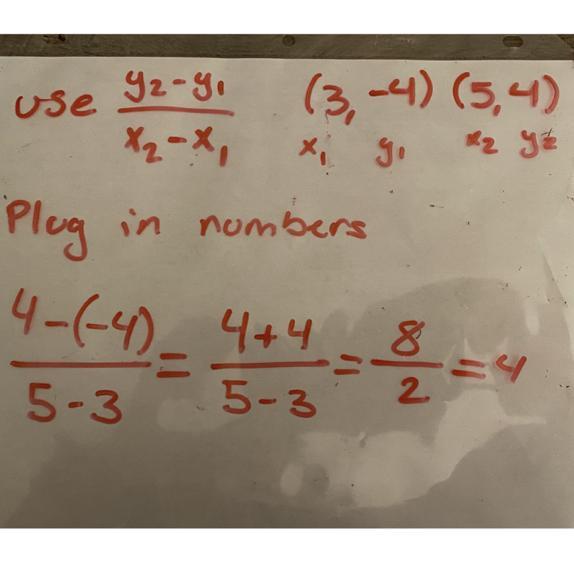 use y₂-y₁ / x₂-x₁ (3,-4) (5,4)
x₁ y₁ x₂ y₂
Plug in numbers
4-(-4) / 5-3 = 4+4 / 5-3 = 8 / 2 = 4